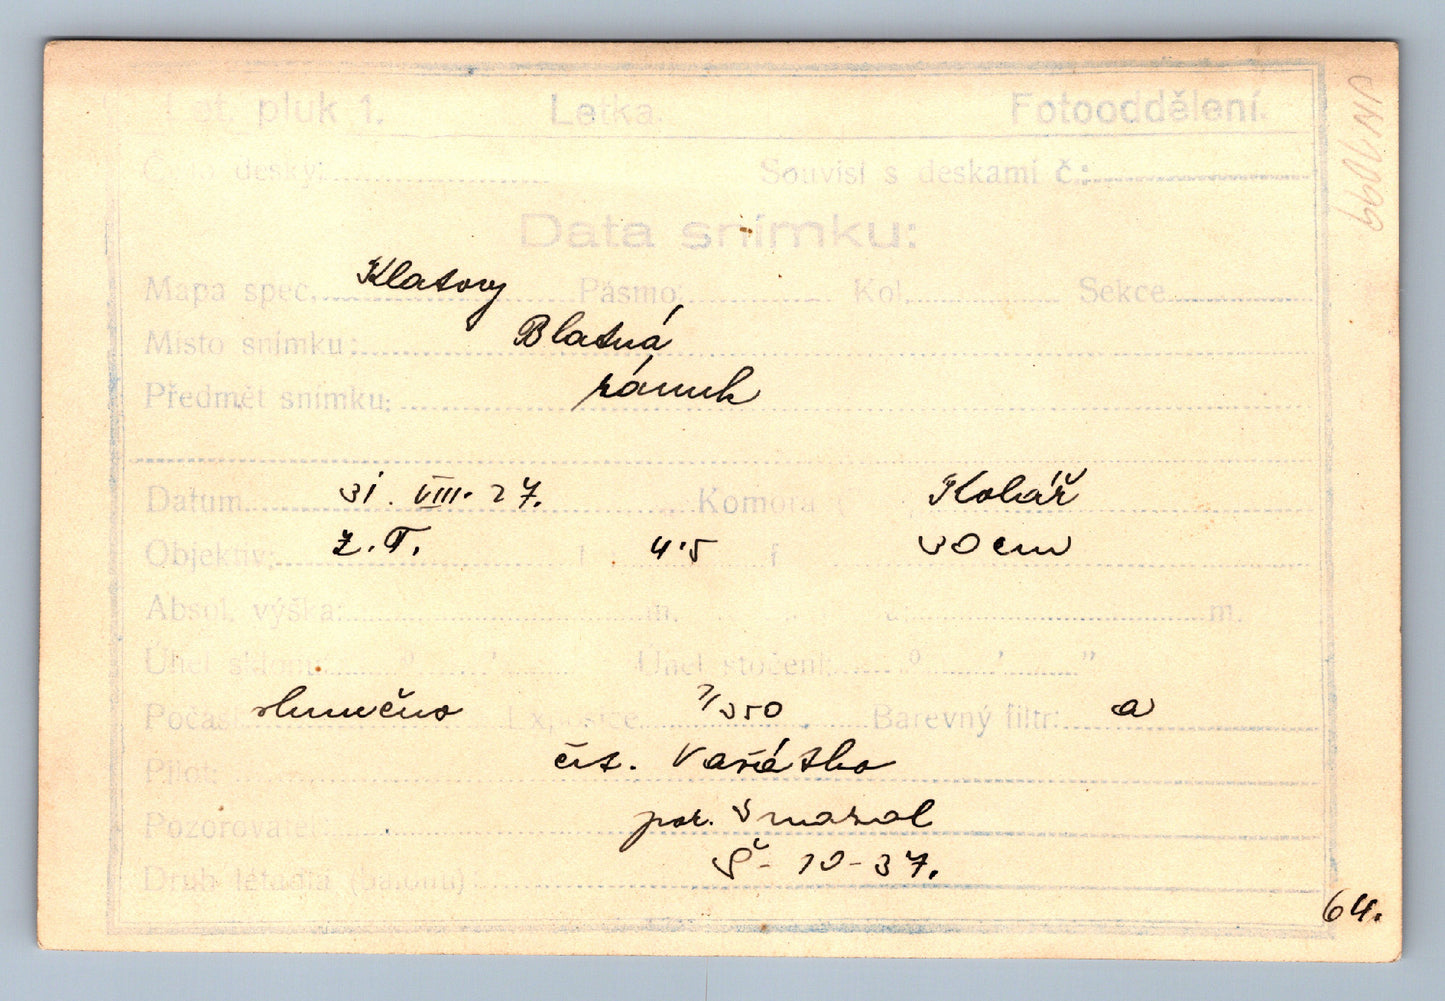 Let. pluk 1. Letka Fotooddělení.
Číslo desky: Souvisí s deskami č.:
Data snímku:
Mapa spec. Klatovy Pásmo: Kol. Sekce
Místo snímku: Blatná
Předmět snímku: zámek
Datum 31. VIII. 27. Komora Kolář
Objektiv: Z.T. 1 : 4·5 f 30 cm
Absol. výška: m. m.
Úhel sklonu: ° ' Úhel stočení: ° ' "
Počasí slunečno Exposice 1/350 Barevný filtr: a
Pilot: čet. Vařátko
Pozorovatel: por. Smazal
Druh letadla (balonu): Š - 10 - 37.
64.